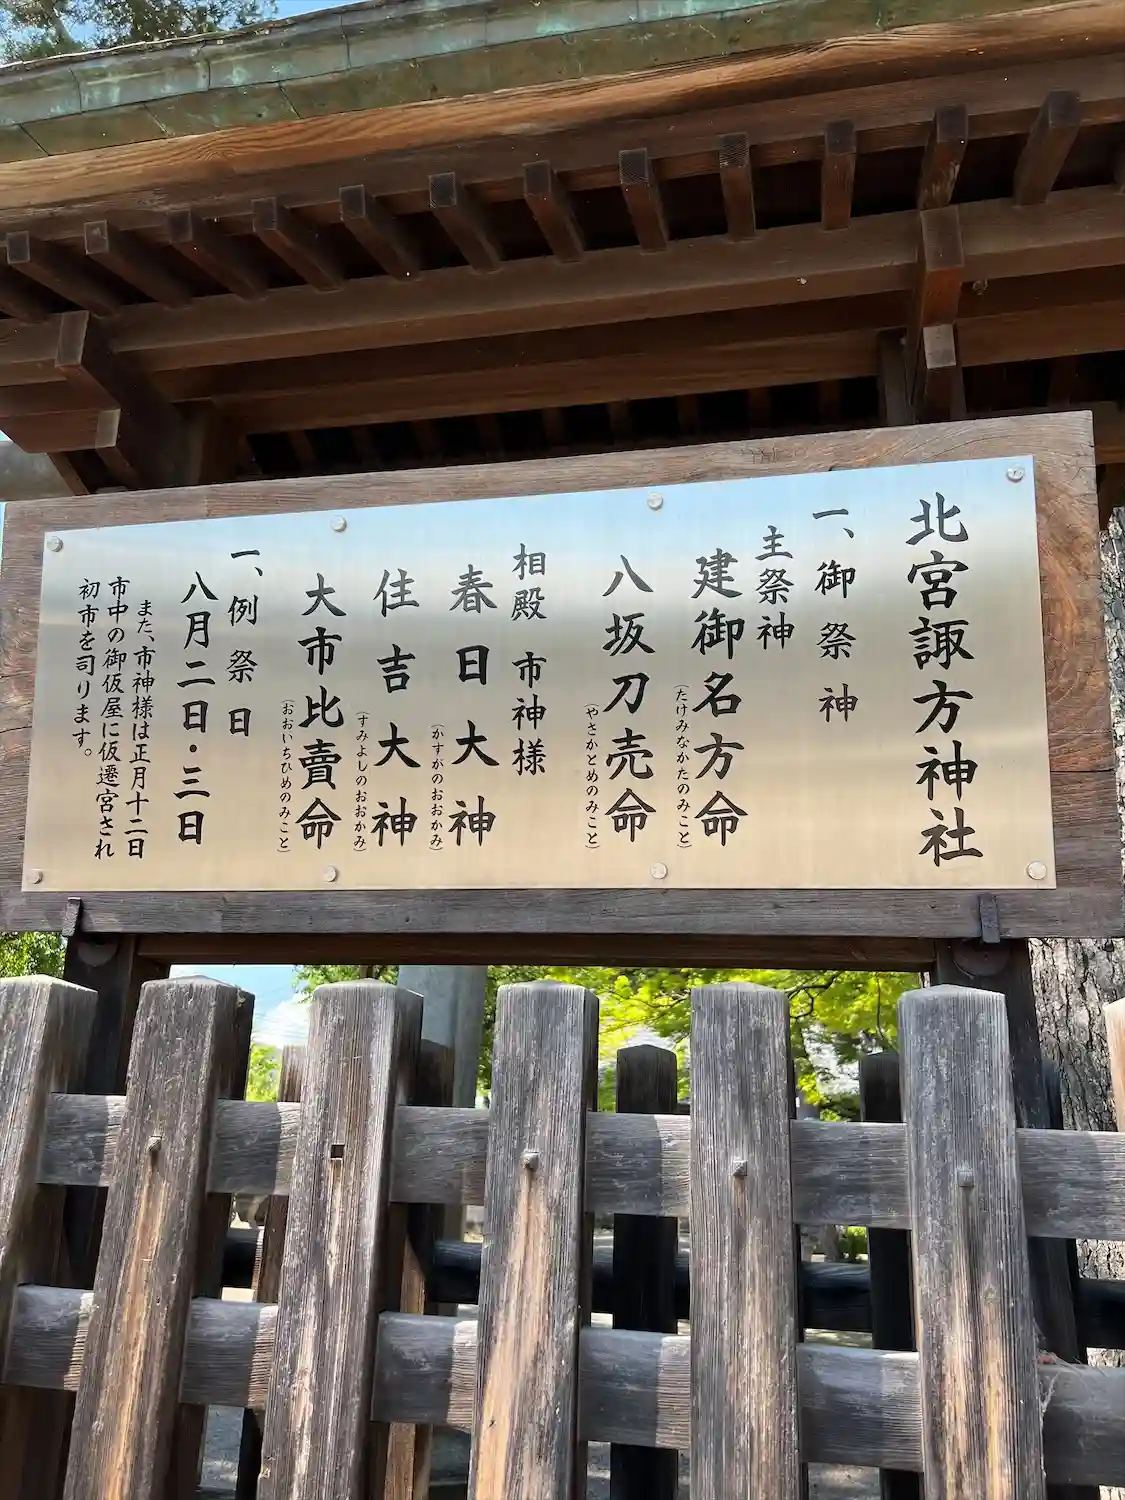 北宮諏方神社
一、御祭神
主祭神
建御名方命
(たけみなかたのみこと)
八坂刀売命
(やさかとめのみこと)
相殿 市神様
春日大神
(かすがのおおかみ)
住吉大神
(すみよしのおおかみ)
大市比賣命
(おおいちひめのみこと)
一、例祭日
八月二日・三日
また、市神様は正月十二日
市中の御仮屋に仮遷宮され
初市を司ります。